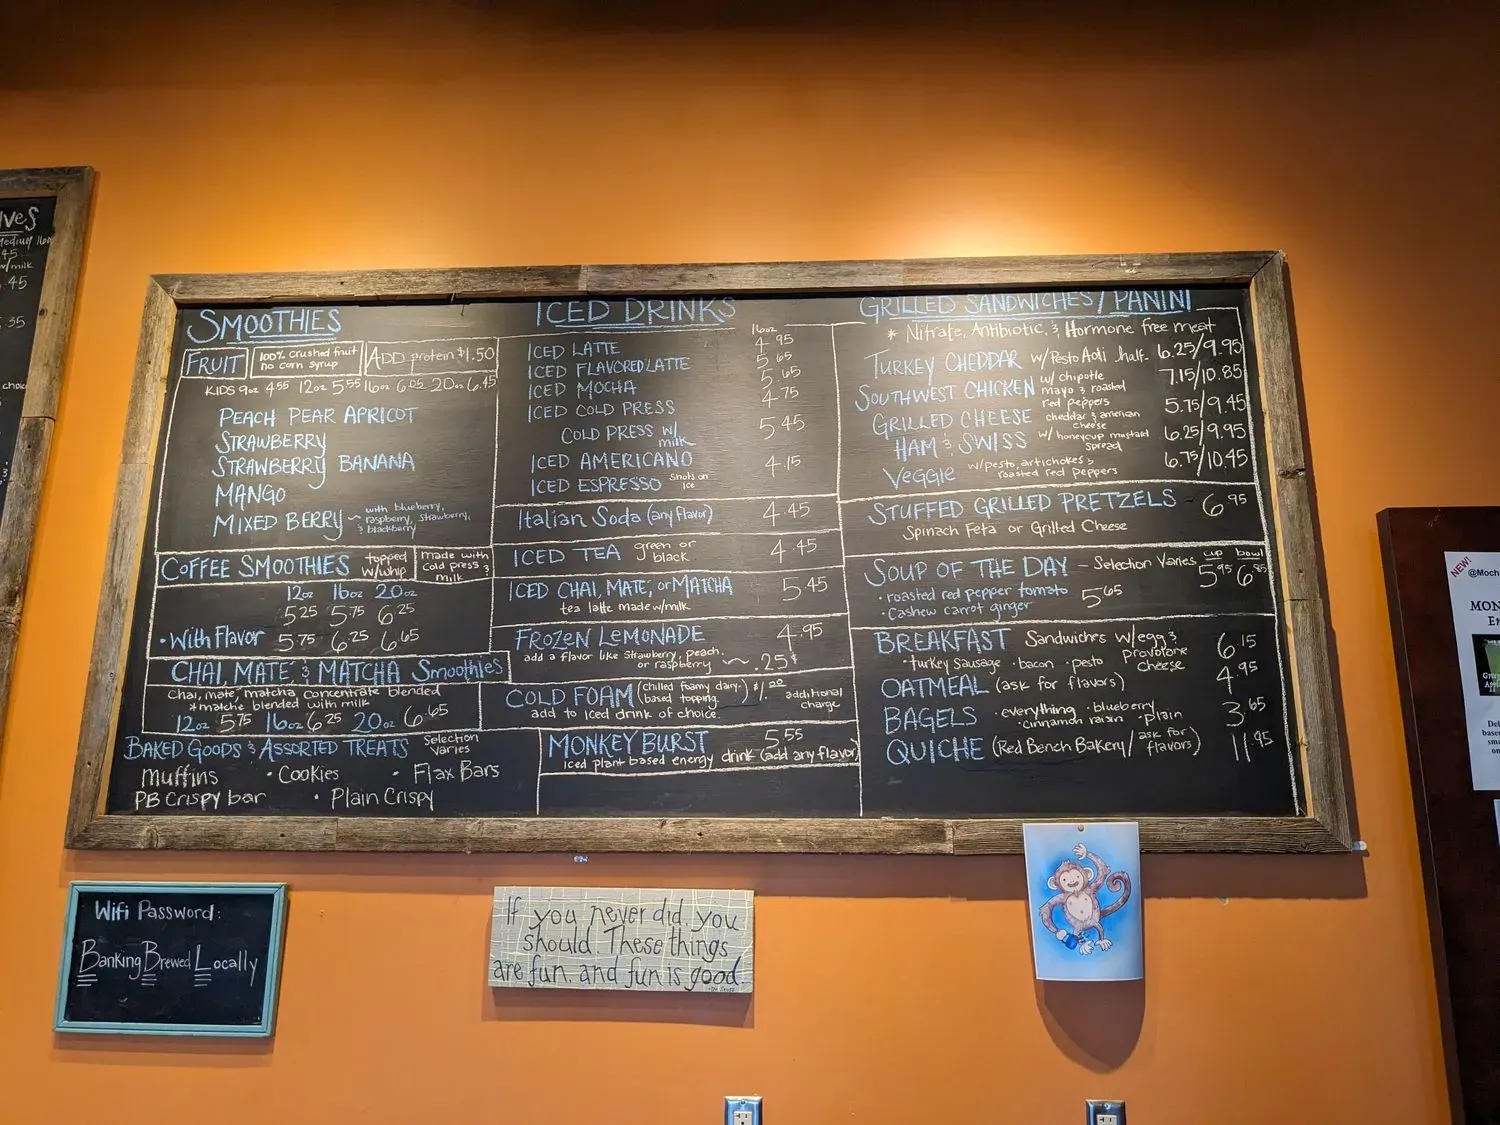 SMOOTHIES
FRUIT
100% crushed fruit
no corn syrup
ADD protein $1.50
KIDS 9oz 4.55 12oz 5.55 16oz 6.05 20oz 6.45
PEACH PEAR APRICOT
STRAWBERRY
STRAWBERRY BANANA
MANGO
MIXED BERRY ~ with blueberry,
raspberry, strawberry,
& blackberry
COFFEE SMOOTHIES topped
w/whip
made with
cold press &
milk
12oz 16oz 20oz
5.25 5.75 6.25
• With Flavor 5.75 6.25 6.65
CHAI, MATE, & MATCHA Smoothies
Chai, mate, matcha concentrate blended
*matche blended with milk
12oz 5.75 16oz 6.25 20oz 6.65
BAKED GOODS & ASSORTED TREATS Selection
varies
Muffins • Cookies • Flax Bars
PB Crispy bar • Plain Crispy
ICED DRINKS
16oz
ICED LATTE 4.95
ICED FLAVORED LATTE 5.65
ICED MOCHA 5.65
ICED COLD PRESS 4.75
COLD PRESS w/
milk 5.45
ICED AMERICANO 4.15
ICED ESPRESSO Shots on
ice
Italian Soda (any flavor) 4.45
ICED TEA green or
black 4.45
ICED CHAI, MATE, or MATCHA 5.45
tea latte made w/milk
FROZEN LEMONADE 4.95
add a flavor like strawberry, peach,
or raspberry ~ .25¢
COLD FOAM (chilled foamy dairy-
based topping.) $1.00 additional
charge
add to iced drink of choice.
MONKEY BURST 5.55
Iced plant based energy drink (add any flavor)
GRILLED SANDWICHES / PANINI
* Nitrate, Antibiotic, & Hormone free meat
TURKEY CHEDDAR w/Pesto Aoli half- 6.25/9.95
SOUTHWEST CHICKEN w/ chipotle
mayo & roasted
red peppers 7.15/10.85
GRILLED CHEESE cheddar & american
cheese 5.75/9.45
HAM & SWISS w/ honeycup mustard
spread 6.25/9.95
VEGGIE w/pesto, artichokes &
roasted red peppers 6.75/10.45
STUFFED GRILLED PRETZELS 6.95
Spinach Feta or Grilled Cheese
SOUP OF THE DAY - Selection Varies cup bowl
5.95 6.85
• roasted red pepper tomato 5.65
• Cashew carrot ginger
BREAKFAST Sandwiches w/egg &
provolone
cheese 6.15
• turkey Sausage • bacon • pesto
OATMEAL (ask for flavors) 4.95
BAGELS • everything • blueberry
• cinnamon raisin • plain 3.65
QUICHE (Red Bench Bakery/ ask for
flavors) 11.95
Medium 16oz
w/milk
Wifi Password:
Banking Brewed Locally
If you never did, you
should. These things
are fun. and fun is good.
NEW!
@Moch
MON